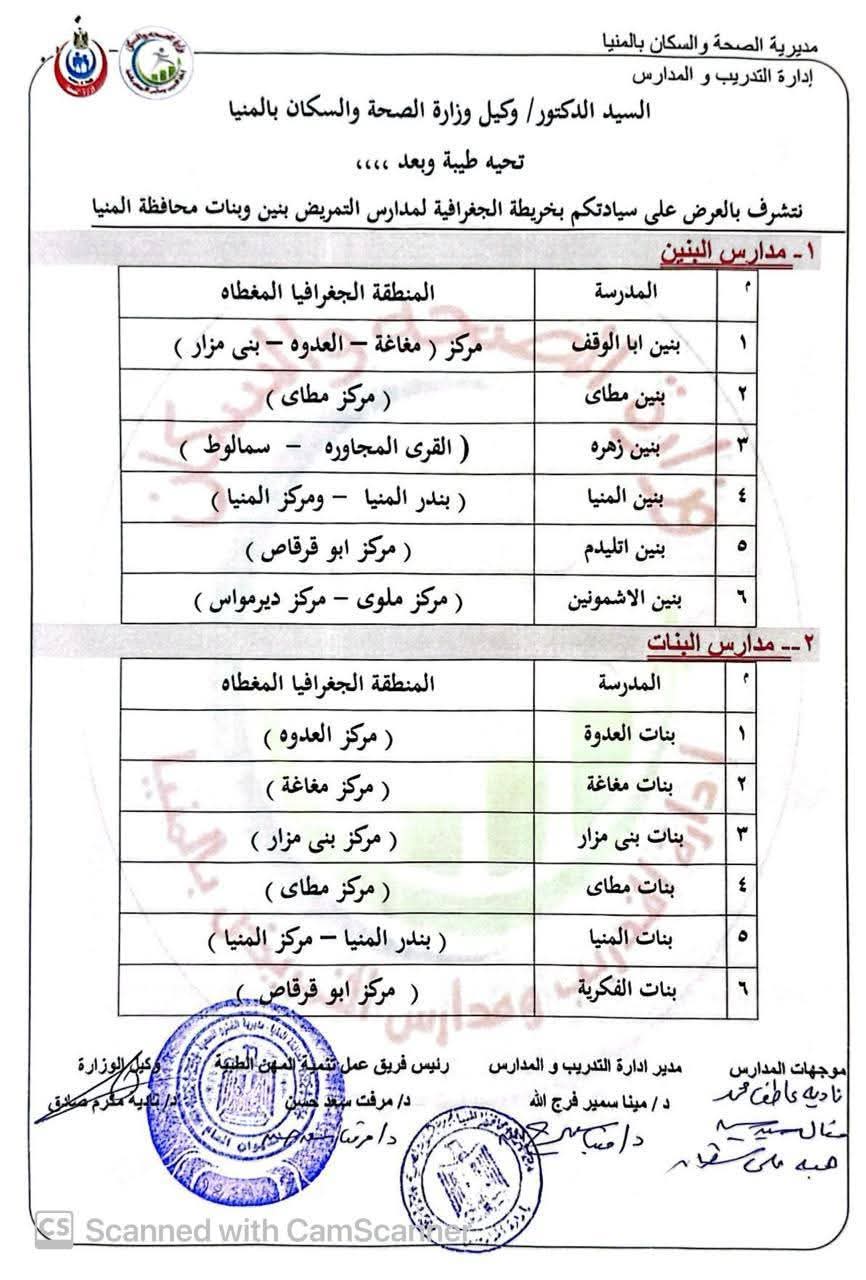 مديرية الصحة والسكان بالمنيا
إدارة التدريب و المدارس
السيد الدكتور/ وكيل وزارة الصحة والسكان بالمنيا
تحيه طيبة وبعد ،،،،
نتشرف بالعرض على سيادتكم بخريطة الجغرافية لمدارس التمريض بنين وبنات محافظة المنيا
١- مدارس البنين
م المدرسة المنطقة الجغرافيا المغطاه
١ بنين ابا الوقف مركز ( مغاغة – العدوه – بنى مزار )
٢ بنين مطاى ( مركز مطاى )
٣ بنين زهره ( القرى المجاوره – سمالوط )
٤ بنين المنيا ( بندر المنيا – ومركز المنيا )
٥ بنين اتليدم ( مركز ابو قرقاص )
٦ بنين الاشمونين ( مركز ملوى – مركز ديرمواس )
٢-- مدارس البنات
م المدرسة المنطقة الجغرافيا المغطاه
١ بنات العدوة ( مركز العدوه )
٢ بنات مغاغة ( مركز مغاغة )
٣ بنات بنى مزار ( مركز بنى مزار )
٤ بنات مطاى ( مركز مطاى )
٥ بنات المنيا ( بندر المنيا – مركز المنيا )
٦ بنات الفكرية ( مركز ابو قرقاص )
وزارة الصحة والسكان
ادارة التدريب ومدارس التمريض بالمنيا
موجهات المدارس مدير ادارة التدريب و المدارس رئيس فريق عمل تنمية المهن الطبية وكيل الوزارة
نادية عاطف محمد د / مينا سمير فرج الله د/ مرفت سعد حسن د/ ناديه مكرم صادق
منال سيد
هبه على
CS Scanned with CamScanner